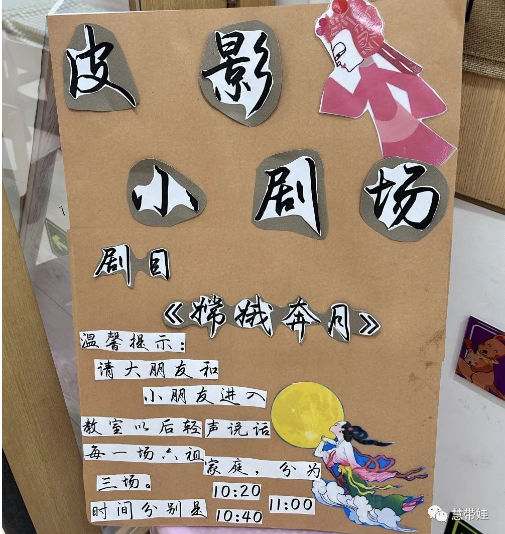 皮影
小剧场
剧目
《嫦娥奔月》
温馨提示:
请大朋友和
小朋友进入
教室以后轻声说话
每一场六组家庭，分为
三场。
时间分别是 10:20
10:40 11:00
慧带娃